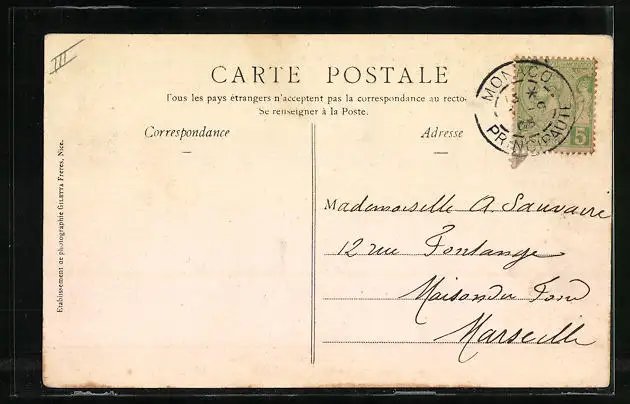 III
CARTE POSTALE
Tous les pays étrangers n'acceptent pas la correspondance au recto.
Se renseigner à la Poste.
Correspondance
Adresse
MONACO
PRINCIPAUTÉ
5
Mademoiselle A Sauvaire
12 rue Fontange
Maison du Fond
Marseille
Etablissement de photographie GILETTA FRÈRES, Nice.